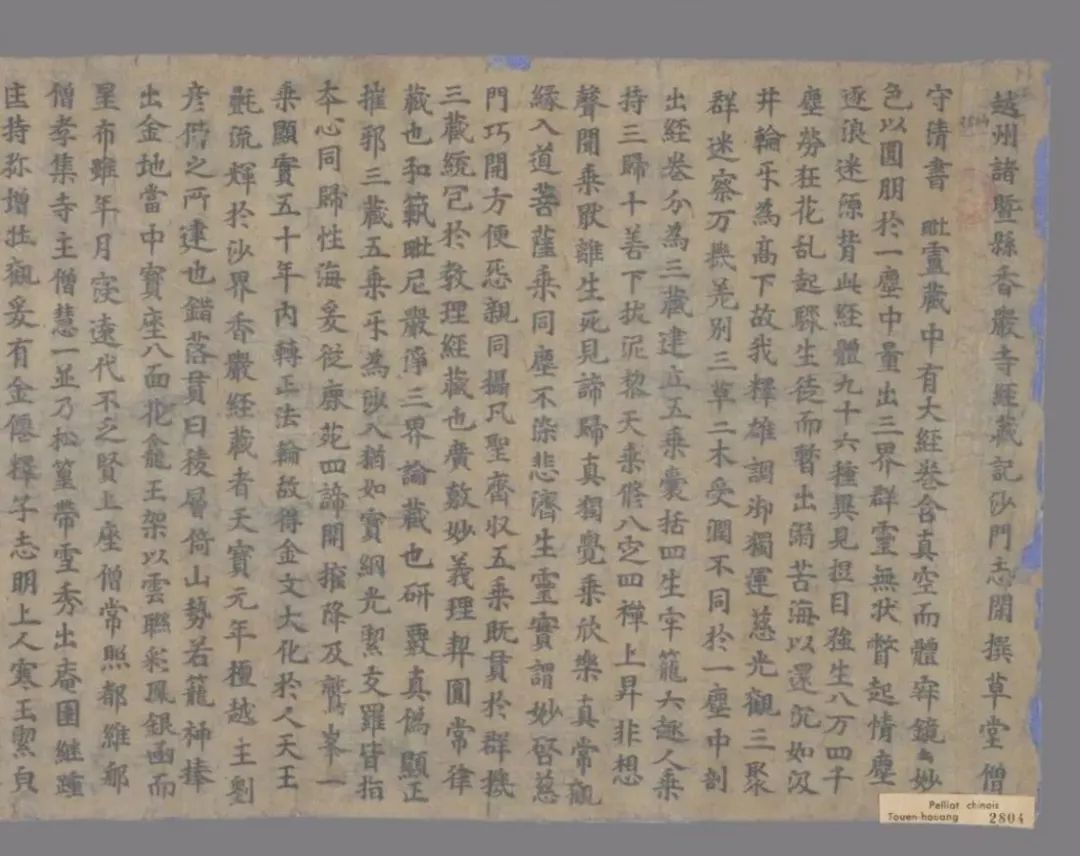 越州諸暨縣香嚴寺經藏記沙門志閑撰草堂僧
守清書 毗盧藏中有大經卷含真空而體寂鏡妙
色以圓明於一塵中量出三界群靈無狀瞥起情塵
逐浪迷源背此經體九十六種異見捏目強生八万四千
塵勞狂花乱起驟生徒而暫出溺苦海以還沉如汲
井輪乐為高下故我釋雄調御獨運慈光觀三聚
群迷察万機羌別三草二木受潤不同於一塵中剖
出經卷分為三藏建立五乘囊括四生牢籠六趣人乘
持三歸十善下拔泥黎天乘修八定四禪上昇非想
聲聞乘厭離生死見諦歸真獨覺乘欣樂真常觀
緣入道菩薩乘同塵不染悲濟生靈實謂妙啓慈
門巧開方便悉親同攝凡聖齊収五乘既貫於群機
三藏統冠於教理經藏也廣敷妙義理契圓常律
藏也和範毗尼嚴淨三界論藏也研覈真偽顯正
摧邪三藏五乘乐為吵入猶如寶網光絜支羅皆指
本心同歸性海爰從鹿苑四諦開權降及鷲峯一
乘顯實五十年內轉正法輪故得金文大化於人天玉
氎流輝於沙界香嚴經藏者天寶元年檀越主劉
彦偕之所建也錯落貫日稜層倚山勢若籠神捧
出金地當中寶座八面花龕玉架以雲聯彩鳳銀函而
星布雖年月寖遠代不乏賢上座僧常照都維那
僧孝集寺主僧慧一並乃松篁帶雪秀出庵園継踵
住持弥增壮觀爰有金僊釋子志明上人寒玉絜貞
Pelliot chinois
Touen-houang 2804